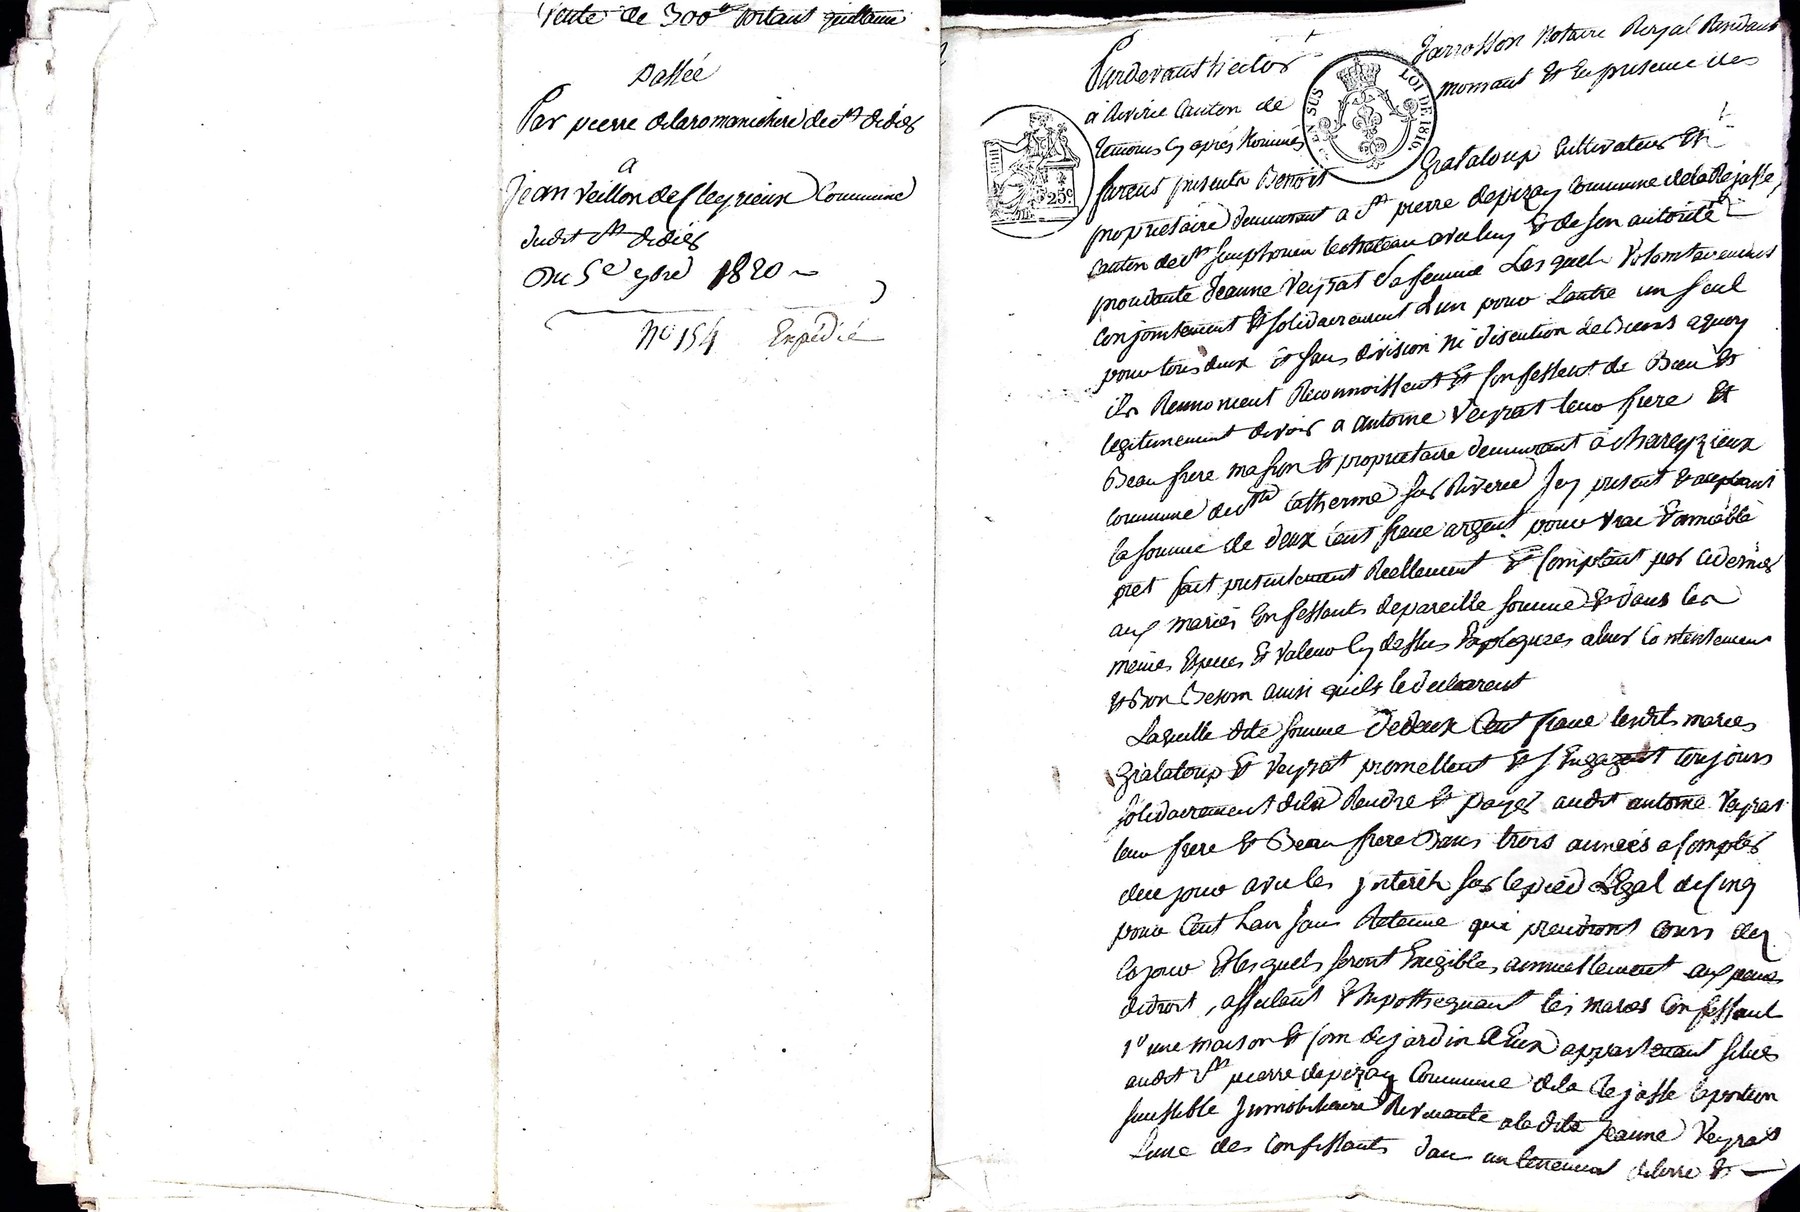 Vente de 300# portant quittance
Passée
Par pierre delaromanichere de St didiés
a
Jean veillon de Cleyrieux Commune
dudit St didiés
Du 5e 9bre 1820
No 154 Expédié
Pardevant hector Garrosson Notaire Royal Résidant
à Riverie Canton de mornant Et En présence des
Temoins Cy après Nommés
furent présents Benoit Grataloup Cultivateur Et
proprietaire demeurant a St pierre depizay Commune de la Rejasse
Canton de St Simphorien le chateau avec luy Et de son autorité
procédante Jeanne Veyrat Sa femme Lesquels Volontairement
Conjointement Et solidairement L'un pour L'autre un seul
pour tous deux Et sans division ni discution de Biens aquoy
ils Renoncent Reconnoissent Et Confessent de Bien Et
legitimement devoir a antoine Veyrat leur frere Et
Beau frere masson Et proprietaire demeurant à chareyzieux
Commune de Ste Catherine sur Riverie Icy présent Et acceptant
la somme de deux Cent franc argent pour vrai Et amiable
pret fait présentement Reellement Et Comptant par ce dernier
aux mariés Confessants de pareille somme Et dans les
meines Especes Et valeur Cy dessus Expliquees a leur Contentement
Et Bon Besoin ainsi quils le declarent
Laquelle dite somme de deux Cent franc lesdits mariés
Grataloup Et Veyrat promettent Et s'Engagent toujours
solidairement de la Rendre Et payer audit antoine Veyrat
leur frere Et Beau frere Dans trois années a Compter
de ce jour avec les jnterêts sur le pied Légal de Cinq
pour Cent L'an sans Retenue qui prendront Cours des
Ce jour Et lesquels seront Exigibles annuellement aux peines
de droit, assulant Et hypothequant les mariés Confessant
1o une maison Et Coin de jardin a Eux appartenant situés
audit St pierre depizay Commune de la Rejasse la portion
Immobiliaire Revenante a ladite Jeanne Veyrat
L'une des Confessants dans un tenement de terre Et
EN SUS LOI DE 1816.
25c